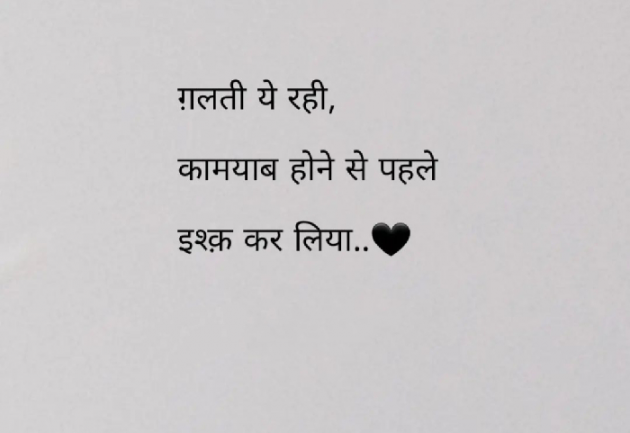 ग़लती ये रही,
कामयाब होने से पहले
इश्क़ कर लिया..🖤